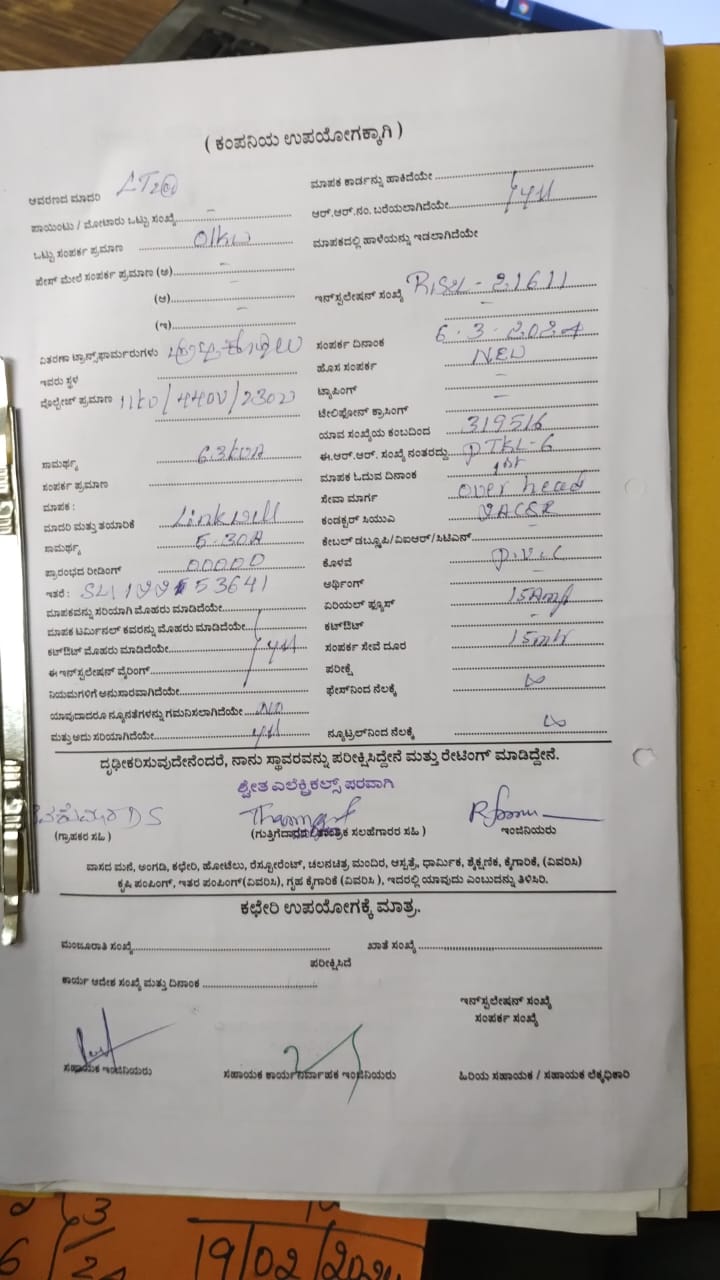 ( ಕಂಪನಿಯ ಉಪಯೋಗಕ್ಕಾಗಿ )
ಆವರಣದ ಮಾದರಿ LT2@ ಮಾಪಕ ಕಾರ್ಡನ್ನು ಹಾಕಿದೆಯೇ
ಪಾಯಿಂಟು / ಮೋಟಾರು ಒಟ್ಟು ಸಂಖ್ಯೆ - ಆರ್.ಆರ್.ನಂ. ಬರೆಯಲಾಗಿದೆಯೇ yes
ಒಟ್ಟು ಸಂಪರ್ಕ ಪ್ರಮಾಣ 01kw ಮಾಪಕದಲ್ಲಿ ಹಾಳೆಯನ್ನು ಇಡಲಾಗಿದೆಯೇ
ಫೇಸ್ ಮೇಲೆ ಸಂಪರ್ಕ ಪ್ರಮಾಣ (ಅ) -
(ಆ) - ಇನ್‌ಸ್ಟಲೇಷನ್ ಸಂಖ್ಯೆ - 21611
(ಇ) - -
ವಿತರಣಾ ಟ್ರಾನ್ಸ್‌ಫಾರ್ಮರುಗಳು ಸಂಪರ್ಕ ದಿನಾಂಕ 6.3.2024
ಇವರು ಸ್ಥಳ ಹೊಸ ಸಂಪರ್ಕ NEW
ವೊಲ್ಟೇಜ್ ಪ್ರಮಾಣ 11kv/440V/230V ಟ್ಯಾಪಿಂಗ್ -
ಟೆಲಿಫೋನ್ ಕ್ರಾಸಿಂಗ್ -
ಯಾವ ಸಂಖ್ಯೆಯ ಕಂಬದಿಂದ 319516
ಸಾಮರ್ಥ್ಯ 63kVA ಈ.ಆರ್.ಆರ್. ಸಂಖ್ಯೆ ನಂತರದ್ದು PTKL-6
ಸಂಪರ್ಕ ಪ್ರಮಾಣ ಮಾಪಕ ಓದುವ ದಿನಾಂಕ 1st
ಮಾಪಕ : ಸೇವಾ ಮಾರ್ಗ over head
ಮಾದರಿ ಮತ್ತು ತಯಾರಿಕೆ Linkwell ಕಂಡಕ್ಟರ್ ಸಿಯುಎ
ಸಾಮರ್ಥ್ಯ 5-30A ಕೇಬಲ್ ಡಬ್ಲ್ಯೂಪಿ/ವಿಐಆರ್/ಸಿಟಿಎಸ್ -
ಪ್ರಾರಂಭದ ರೀಡಿಂಗ್ 00000 ಕೊಳವೆ P.V.C
ಇತರೆ : ಅರ್ಥಿಂಗ್ -
ಮಾಪಕವನ್ನು ಸರಿಯಾಗಿ ಮೊಹರು ಮಾಡಿದೆಯೇ ಏರಿಯಲ್ ಫ್ಯೂಸ್ 15Amp
ಮಾಪಕ ಟರ್ಮಿನಲ್ ಕವರನ್ನು ಮೊಹರು ಮಾಡಿದೆಯೇ ಕಟ್‌ಔಟ್ -
ಕಟ್‌ಔಟ್ ಮೊಹರು ಮಾಡಿದೆಯೇ yes ಸಂಪರ್ಕ ಸೇವೆ ದೂರ 15mtr
ಈ ಇನ್‌ಸ್ಟಲೇಷನ್ ವೈರಿಂಗ್ ಪರೀಕ್ಷೆ
ನಿಯಮಗಳಿಗೆ ಅನುಸಾರವಾಗಿದೆಯೇ ಫೇಸ್‌ನಿಂದ ನೆಲಕ್ಕೆ ∞
ಯಾವುದಾದರೂ ನ್ಯೂನತೆಗಳನ್ನು ಗಮನಿಸಲಾಗಿದೆಯೇ No
ಮತ್ತು ಅದು ಸರಿಯಾಗಿದೆಯೇ yes ನ್ಯೂಟ್ರಲ್‌ನಿಂದ ನೆಲಕ್ಕೆ ∞
ದೃಢೀಕರಿಸುವುದೇನೆಂದರೆ, ನಾನು ಸ್ಥಾವರವನ್ನು ಪರೀಕ್ಷಿಸಿದ್ದೇನೆ ಮತ್ತು ರೇಟಿಂಗ್ ಮಾಡಿದ್ದೇನೆ.
ಶ್ವೇತ ಎಲೆಕ್ಟ್ರಿಕಲ್ಸ್ ಪರವಾಗಿ
(ಗ್ರಾಹಕರ ಸಹಿ) (ಗುತ್ತಿಗೆದಾರರ / ತಾಂತ್ರಿಕ ಸಲಹೆಗಾರರ ಸಹಿ ) ಇಂಜಿನಿಯರು
ವಾಸದ ಮನೆ, ಅಂಗಡಿ, ಕಛೇರಿ, ಹೋಟೆಲು, ರೆಸ್ಟೋರೆಂಟ್, ಚಲನಚಿತ್ರ ಮಂದಿರ, ಆಸ್ಪತ್ರೆ, ಧಾರ್ಮಿಕ, ಶೈಕ್ಷಣಿಕ, ಕೈಗಾರಿಕೆ, (ವಿವರಿಸಿ)
ಕೃಷಿ ಪಂಪಿಂಗ್, ಇತರ ಪಂಪಿಂಗ್(ವಿವರಿಸಿ), ಗೃಹ ಕೈಗಾರಿಕೆ (ವಿವರಿಸಿ ), ಇದರಲ್ಲಿ ಯಾವುದು ಎಂಬುದನ್ನು ತಿಳಿಸಿರಿ.
ಕಛೇರಿ ಉಪಯೋಗಕ್ಕೆ ಮಾತ್ರ.
ಮಂಜೂರಾತಿ ಸಂಖ್ಯೆ ಖಾತೆ ಸಂಖ್ಯೆ
ಪರೀಕ್ಷಿಸಿದೆ
ಕಾರ್ಯ ಆದೇಶ ಸಂಖ್ಯೆ ಮತ್ತು ದಿನಾಂಕ
ಇನ್‌ಸ್ಟಲೇಷನ್ ಸಂಖ್ಯೆ
ಸಂಪರ್ಕ ಸಂಖ್ಯೆ
ಸಹಾಯಕ ಇಂಜಿನಿಯರು ಸಹಾಯಕ ಕಾರ್ಯನಿರ್ವಾಹಕ ಇಂಜಿನಿಯರು ಹಿರಿಯ ಸಹಾಯಕ / ಸಹಾಯಕ ಲೆಕ್ಕಧಿಕಾರಿ
19/02/202